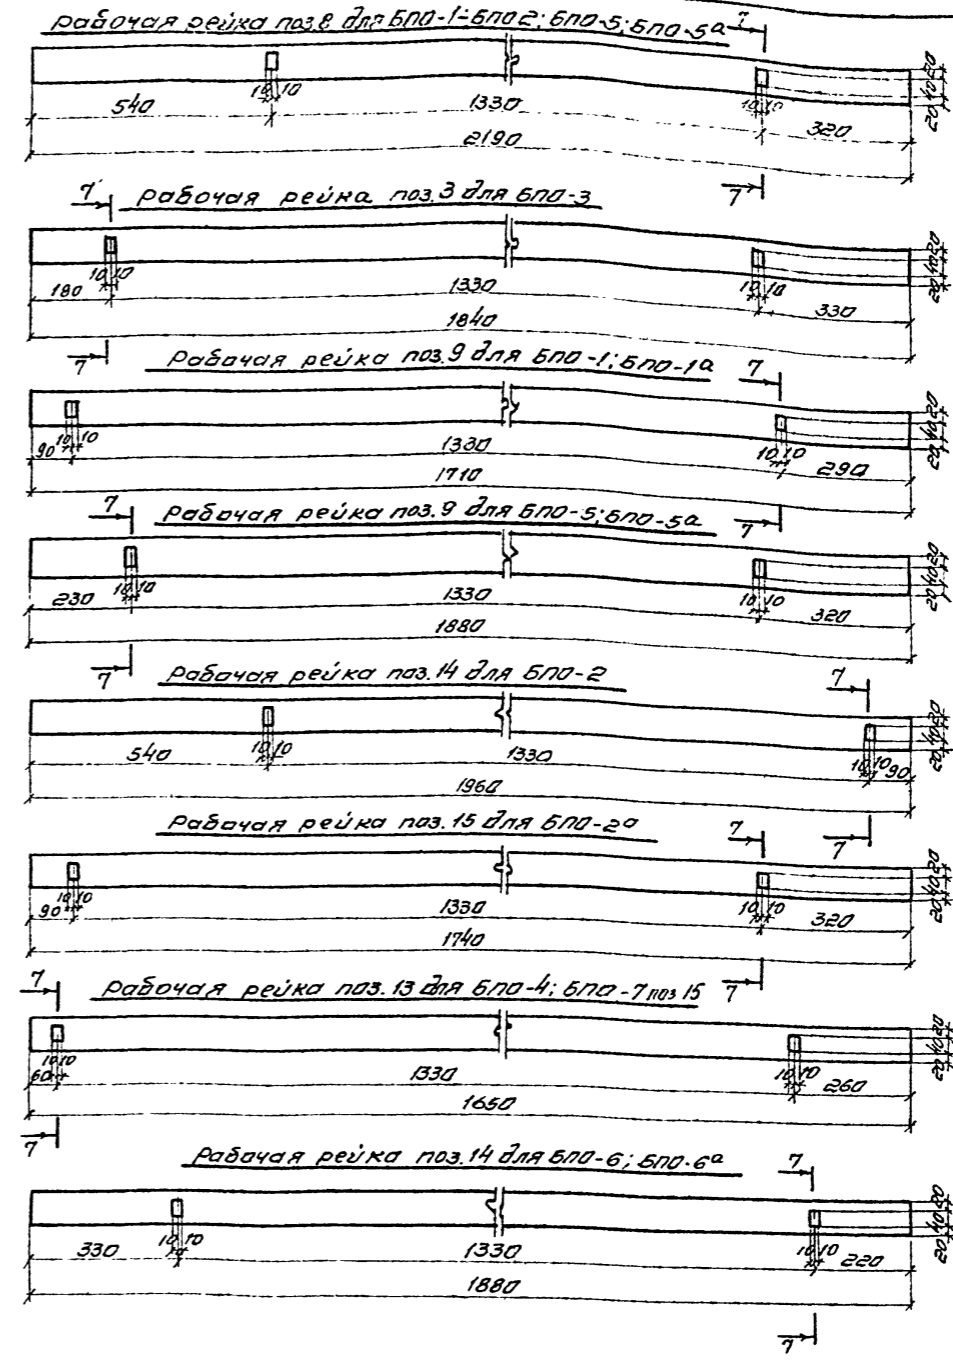 рабочая рейка поз.8 для БПО-1÷БПО2; БПО-5; БПО-5а
7
20 40 20
10 10
10 10
540
1330
320
2190
7
7
рабочая рейка поз.3 для БПО-3
20 40 20
10 10
10 10
180
1330
330
1840
7
Рабочая рейка поз.9 для БПО-1; БПО-1а
7
20 40 20
10 10
10 10
90
1330
290
1710
7
7
Рабочая рейка поз.9 для БПО-5; БПО-5а
20 40 20
10 10
10 10
230
1330
320
1880
7
Рабочая рейка поз.14 для БПО-2
7
20 40 20
10 10
10 10
540
1330
90
1960
7
Рабочая рейка поз.15 для БПО-2а
7
20 40 20
10 10
10 10
90
1330
320
1740
7
7
Рабочая рейка поз.13 для БПО-4; БПО-7 поз 15
20 40 20
10 10
10 10
60
1330
260
1650
7
Рабочая рейка поз.14 для БПО-6; БПО-6а
7
20 40 20
10 10
10 10
330
10
1330
220
1880
7